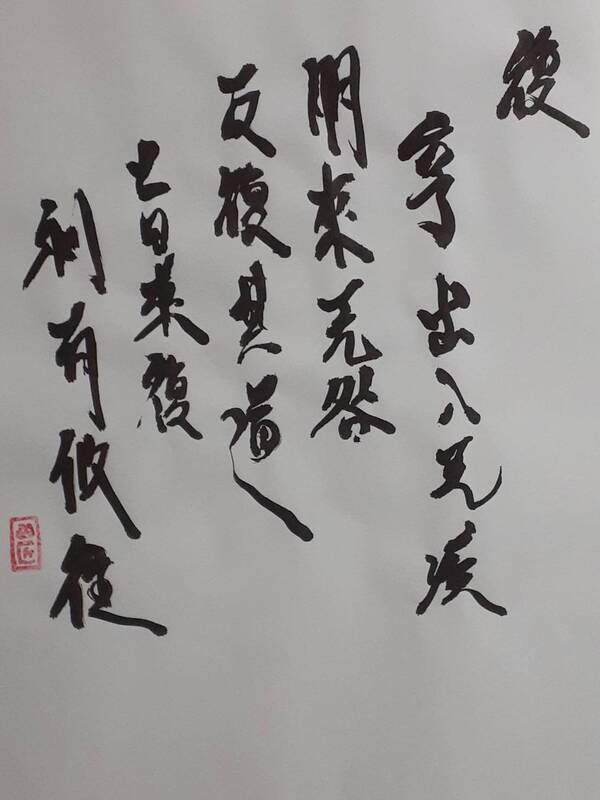 復
亨出入无疾
朋來无咎
反復其道
七日来復
利有攸往